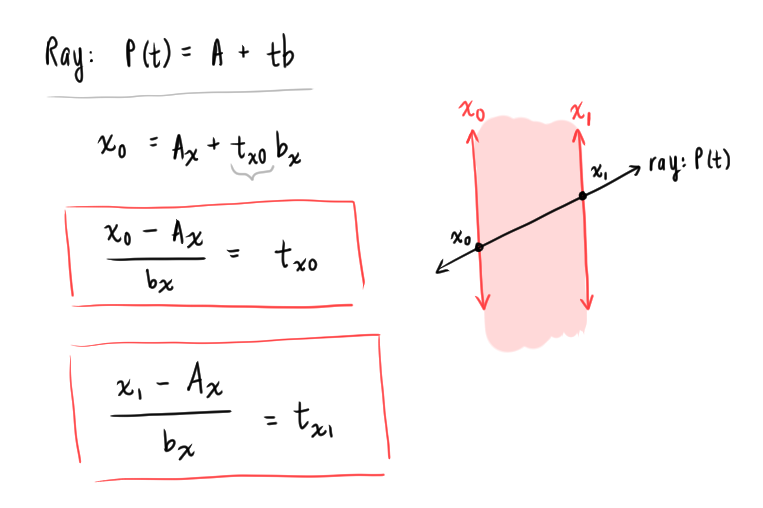 Ray: P(t) = A + tb
x₀ = Aₓ + tₓ₀ bₓ
x₀ - Aₓ / bₓ = tₓ₀
x₁ - Aₓ / bₓ = tₓ₁
x₀ x₁
x₁ ray: P(t)
x₀